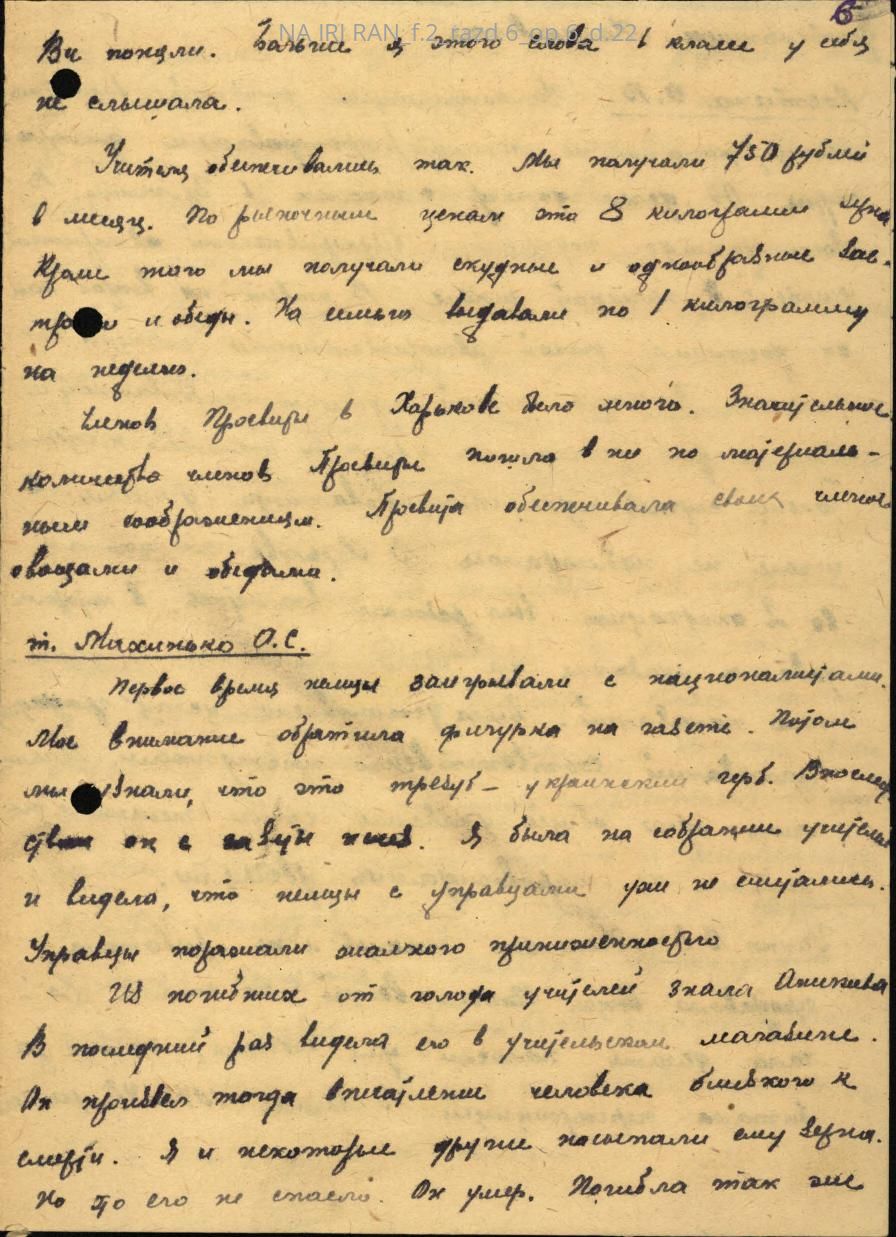 6
NA IRI RAN_f.2_razd.6_op.6_d.22
Вы поняли. Больше я этого слова в классе у себя
не слышала.
Учителя обеспечивались так. Мы получали 750 рублей
в месяц. По рыночным ценам это 8 килограмм зерна.
Кроме того мы получали скудные и однообразные зав-
траки и обеды. На семью выдавали по 1 килограмму
на неделю.
Членов Просвиты в Харькове было много. Значительное
количество членов Просвиты пошло в нее по материаль-
ным соображениям. Просвита обеспечивала своих членов
овощами и обедами.
т. Михинько О.С.
Первое время немцы заигрывали с националистами.
Мое внимание обратила фигурка на газете. Потом
мы узнали, что это трезуб - украинский герб. Впослед
ствии он с газеты исчез. Я была на собрании учителей
и видела, что немцы с управцами уже не считались.
Управцы поражали жалкою приниженностью
Из погибших от голода учителей знала Аникиева
В последний раз видела его в учительском магазине.
Он произвел тогда впечатление человека близкого к
смерти. Я и некоторые другие насыпали ему зерна.
Но это его не спасло. Он умер. Погибла так же